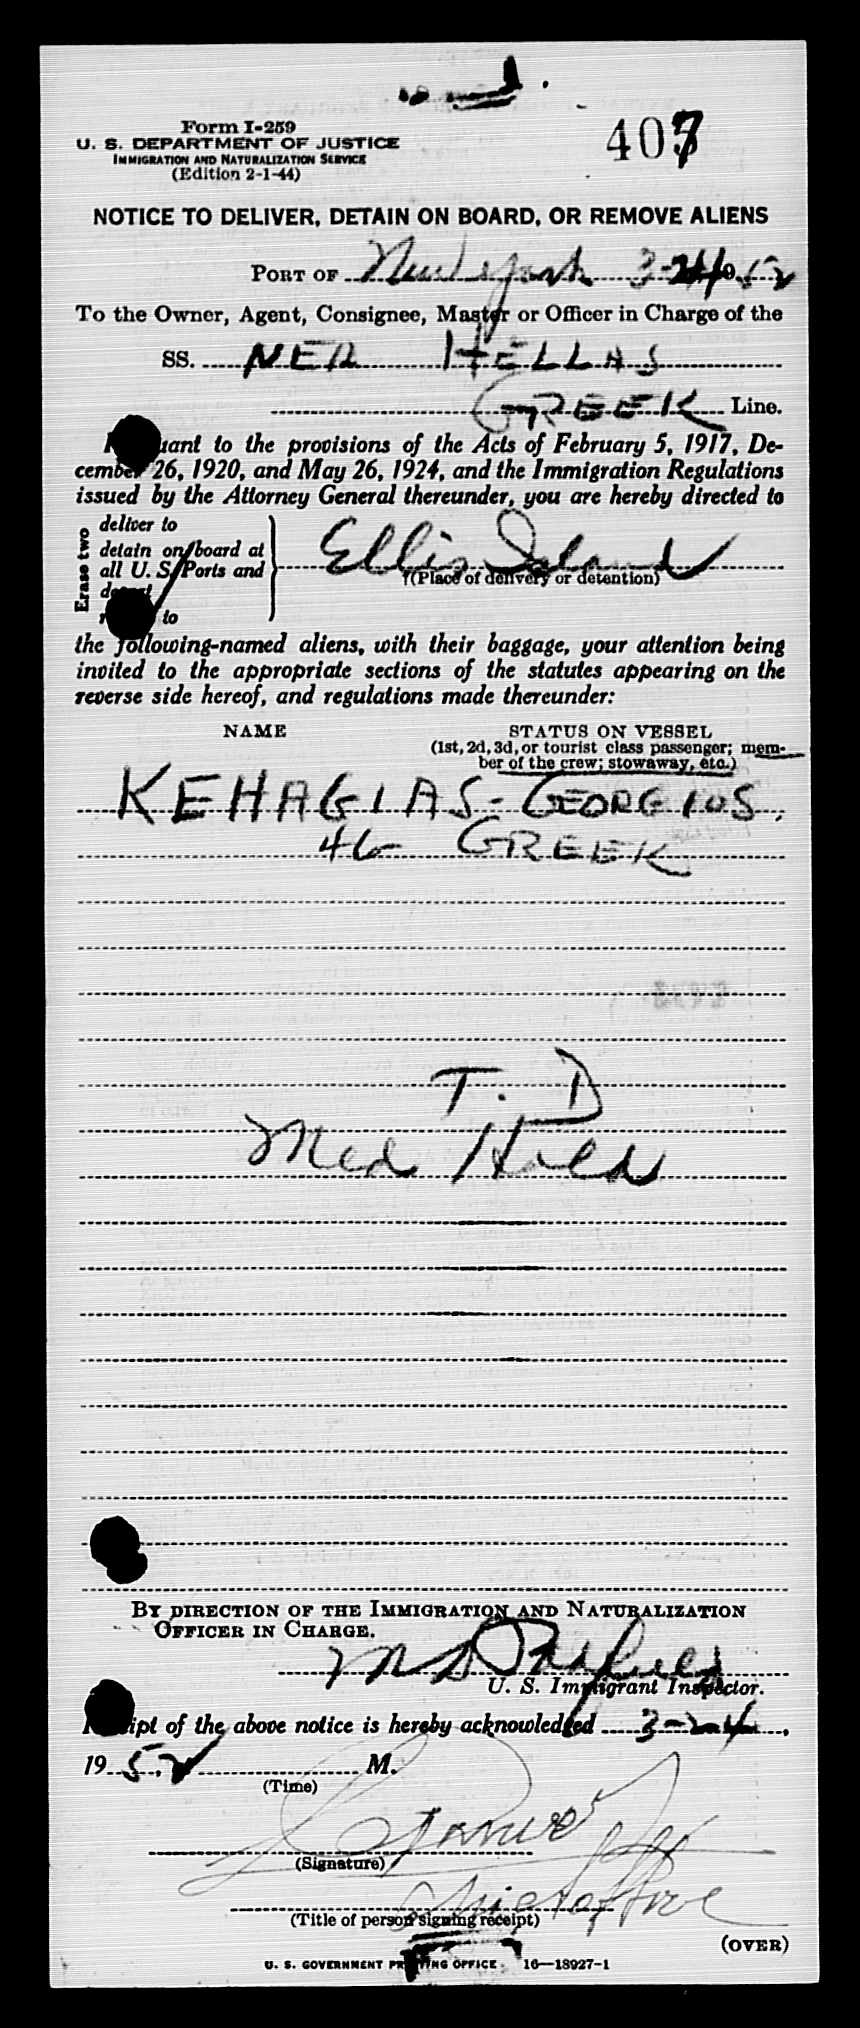 Form I-259
U. S. DEPARTMENT OF JUSTICE
IMMIGRATION AND NATURALIZATION SERVICE
(Edition 2-1-44)
407
NOTICE TO DELIVER, DETAIN ON BOARD, OR REMOVE ALIENS
PORT OF New York 3-24 1952
To the Owner, Agent, Consignee, Master or Officer in Charge of the
SS. NEA HELLAS
GREEK Line.
to the provisions of the Acts of February 5, 1917, De-
cember 26, 1920, and May 26, 1924, and the Immigration Regulations
issued by the Attorney General thereunder, you are hereby directed to
Erase two
deliver to
detain on board at
all U. S. Ports and
to
Ellis Island
(Place of delivery or detention)
the following-named aliens, with their baggage, your attention being
invited to the appropriate sections of the statutes appearing on the
reverse side hereof, and regulations made thereunder:
NAME
STATUS ON VESSEL
(1st, 2d, 3d, or tourist class passenger; mem-
ber of the crew; stowaway, etc.)
KEHAGIAS - GEORGIOS.
46 GREEK
T. D
Med Hold
BY DIRECTION OF THE IMMIGRATION AND NATURALIZATION
OFFICER IN CHARGE.
U. S. Immigrant Inspector.
Receipt of the above notice is hereby acknowledged 3-24,
1952 M.
(Time)
(Signature)
(Title of person signing receipt)
(OVER)
U. S. GOVERNMENT PRINTING OFFICE 16—18927-1